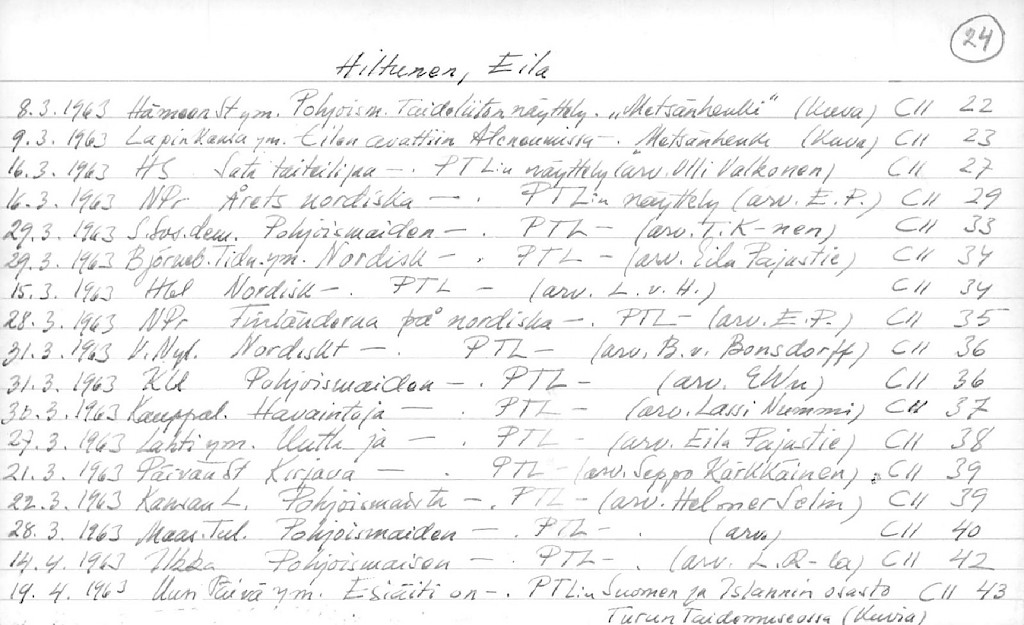 24
Hiltunen, Eila
8.3.1963 Hämeen St ym. Pohjoism. Taideliiton näyttely. "Metsänhenki" (Kuva) CII 22
9.3.1963 Lapin Kansa ym. Eilen avattiin Ateneumissa -. "Metsänhenki (Kuva) CII 23
16.3.1963 HS Sata taiteilijaa -. PTL:n näyttely (arv. Ulli Valkonen) CII 27
16.3.1963 NPr Årets nordiska -. PTL:n näyttely (arv. E.P.) CII 29
29.3.1963 S.Sos.dem. Pohjoismaiden -. PTL - (arv. T.K-nen) CII 33
29.3.1963 Björneb.Tidn.ym. Nordisk -. PTL - (arv. Eila Pajastie) CII 34
15.3.1963 Hbl Nordisk -. PTL - (arv. L.v.H.) CII 34
28.3.1963 NPr Finländerna på nordiska -. PTL - (arv. E.P.) CII 35
31.3.1963 V.Nyl. Nordiskt -. PTL - (arv. B.v. Bonsdorff) CII 36
31.3.1963 Pohjoismaiden -. PTL - (arv. EWn) CII 36
30.3.1963 Kauppal. Havaintoja -. PTL - (arv. Lassi Nummi) CII 37
27.3.1963 Lahti ym. Uutta ja -. PTL - (arv. Eila Pajastie) CII 38
21.3.1963 Päivän St Kirjava -. PTL - (arv. Seppo Kärkkäinen) CII 39
22.3.1963 Kansan L. Pohjoismaista -. PTL - (arv. Helmer Selin) CII 39
28.3.1963 Maas.Tul. Pohjoismaiden -. PTL -. (arv.) CII 40
14.4.1963 Ilkka Pohjoismaisen -. PTL -. (arv. L.R-la) CII 42
19.4.1963 Uusi Päivä ym. Esiäiti on -. PTL:n Suomen ja Islannin osasto CII 43
Turun Taidemuseossa (Kuvia)